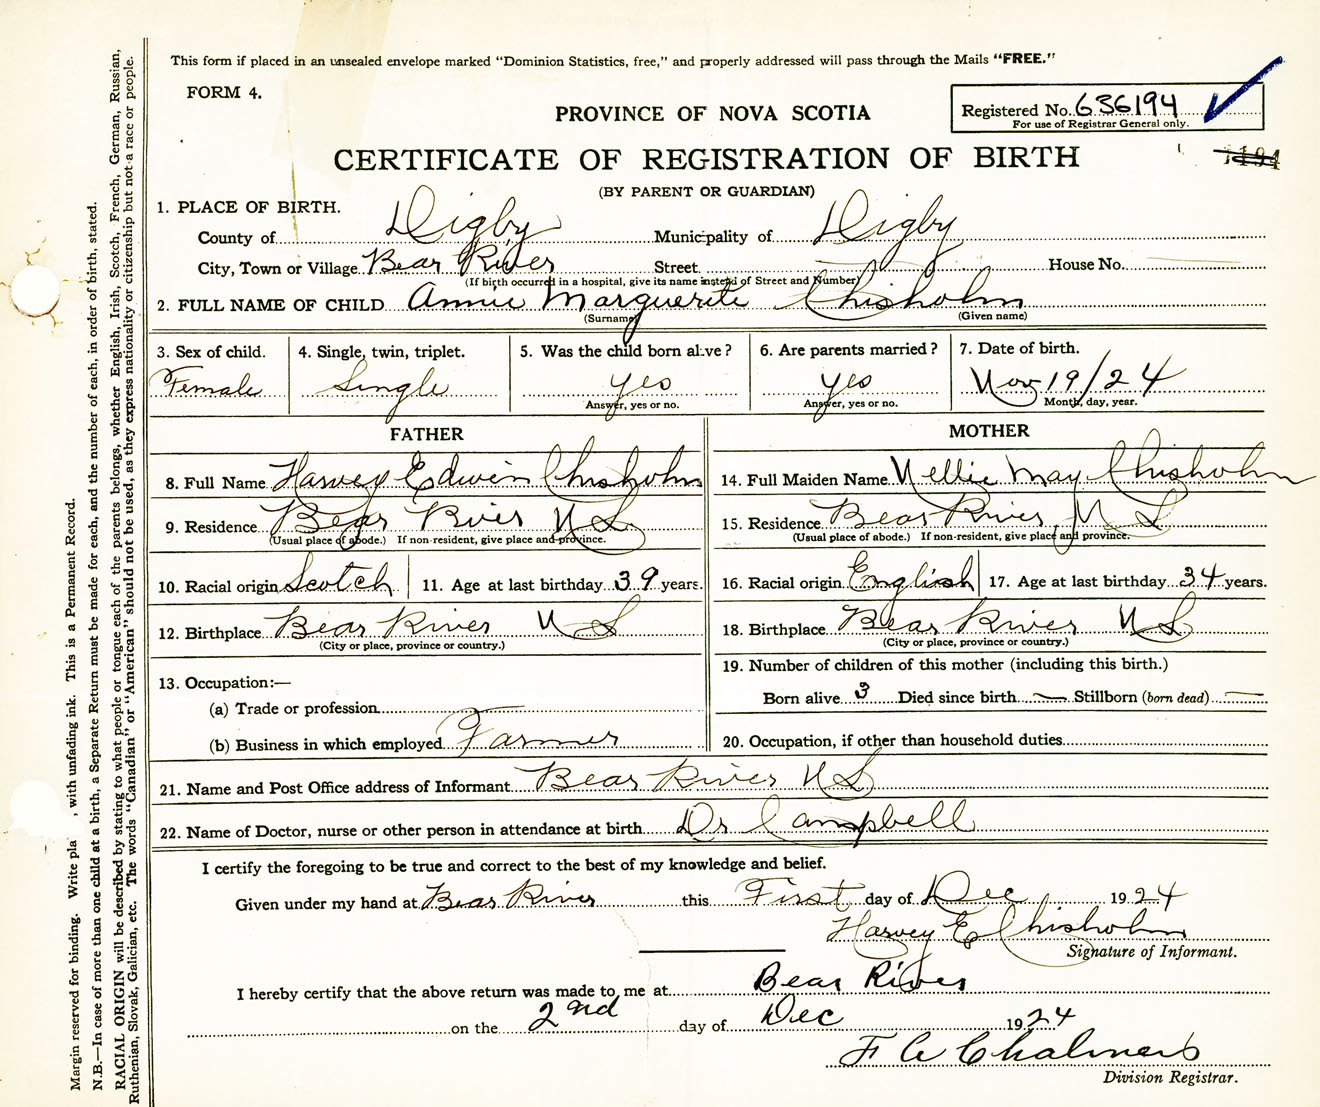 This form if placed in an unsealed envelope marked "Dominion Statistics, free," and properly addressed will pass through the Mails "FREE."
FORM 4.
PROVINCE OF NOVA SCOTIA
Registered No. 636194
For use of Registrar General only.
CERTIFICATE OF REGISTRATION OF BIRTH
(BY PARENT OR GUARDIAN)
1. PLACE OF BIRTH.
County of Digby Municipality of Digby
City, Town or Village Bear River Street House No.
(If birth occurred in a hospital, give its name instead of Street and Number)
2. FULL NAME OF CHILD Annie Marguerite Chisholm
(Surname) (Given name)
3. Sex of child. 4. Single, twin, triplet. 5. Was the child born alive? 6. Are parents married? 7. Date of birth.
Female Single yes yes Nov 19/24
Answer, yes or no. Answer, yes or no. Month, day, year.
FATHER MOTHER
8. Full Name Harvey Edwin Chisholm 14. Full Maiden Name Nellie May Chisholm
9. Residence Bear River N S 15. Residence Bear River, N S
(Usual place of abode.) If non-resident, give place and province. (Usual place of abode.) If non-resident, give place and province.
10. Racial origin Scotch 11. Age at last birthday 39 years. 16. Racial origin English 17. Age at last birthday 34 years.
12. Birthplace Bear River N S 18. Birthplace Bear River N S
(City or place, province or country.) (City or place, province or country.)
13. Occupation:— 19. Number of children of this mother (including this birth.)
(a) Trade or profession Born alive 3 Died since birth — Stillborn (born dead) —
(b) Business in which employed Farmer 20. Occupation, if other than household duties
21. Name and Post Office address of Informant Bear River N S
22. Name of Doctor, nurse or other person in attendance at birth Dr Campbell
I certify the foregoing to be true and correct to the best of my knowledge and belief.
Given under my hand at Bear River this First day of Dec 1924
Harvey E Chisholm
Signature of Informant.
I hereby certify that the above return was made to me at Bear River
on the 2nd day of Dec 1924
F A Chalmers
Division Registrar.
Margin reserved for binding. Write pla , with unfading ink. This is a Permanent Record.
N.B.—In case of more than one child at a birth, a Separate Return must be made for each, and the number of each, in order of birth, stated.
RACIAL ORIGIN will be described by stating to what people or tongue each of the parents belongs, whether English, Irish, Scotch, French, German, Russian,
Ruthenian, Slovak, Galician, etc. The words "Canadian" or "American" should not be used, as they express nationality or citizenship but not a race or people.